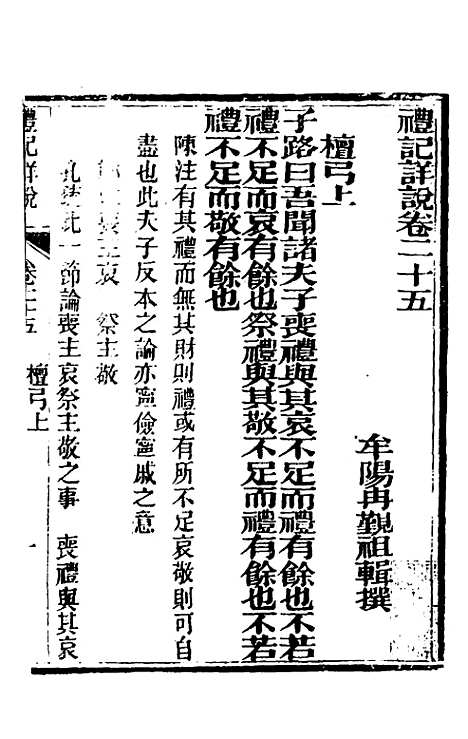 禮記詳說卷二十五
牟陽冉覲祖輯撰
檀弓上
子路曰吾聞諸夫子喪禮與其哀不足而禮有餘也不若
禮不足而哀有餘也祭禮與其敬不足而禮有餘也不若
禮不足而敬有餘也
陳注有其禮而無其財則禮或有所不足哀敬則可自
盡也此夫子反本之論亦寧儉寧戚之意
喪主哀 祭主敬
孔疏此一節論喪主哀祭主敬之事 喪禮與其哀
禮記詳說 卷二十五 檀弓上 一